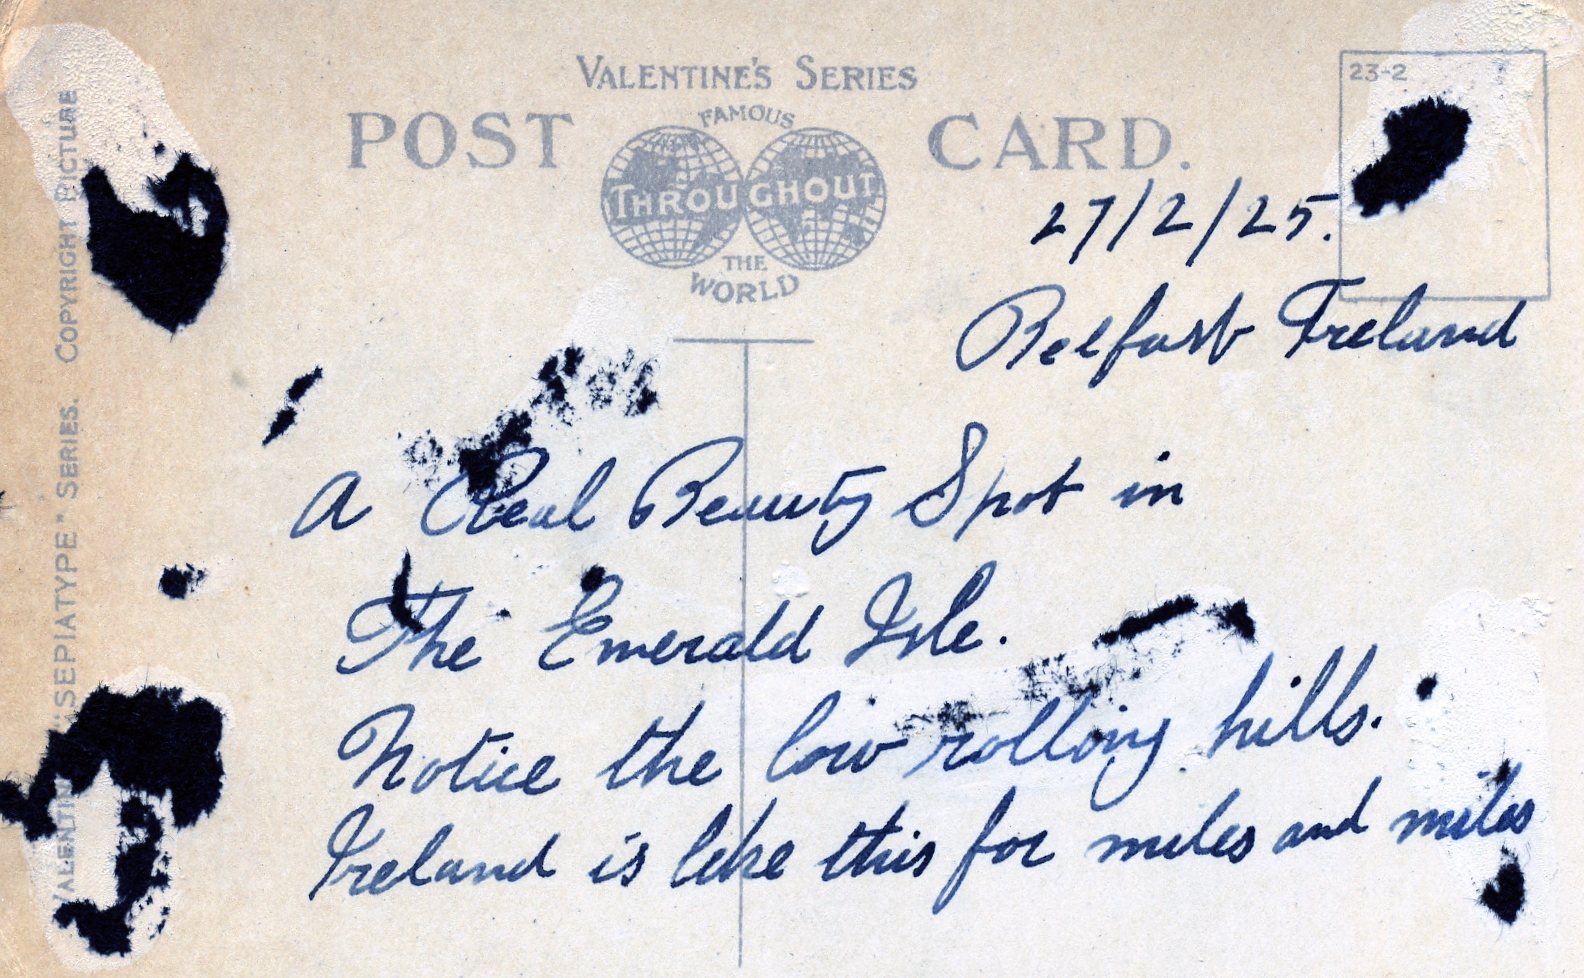 VALENTINE'S SERIES
POST CARD.
FAMOUS
THROUGHOUT
THE
WORLD
23-2
27/2/25.
Belfast Ireland
A Real Beauty Spot in
The Emerald Isle.
Notice the low rolling hills.
Ireland is like this for miles and miles
VALENTINE "SEPIATYPE" SERIES. COPYRIGHT PICTURE